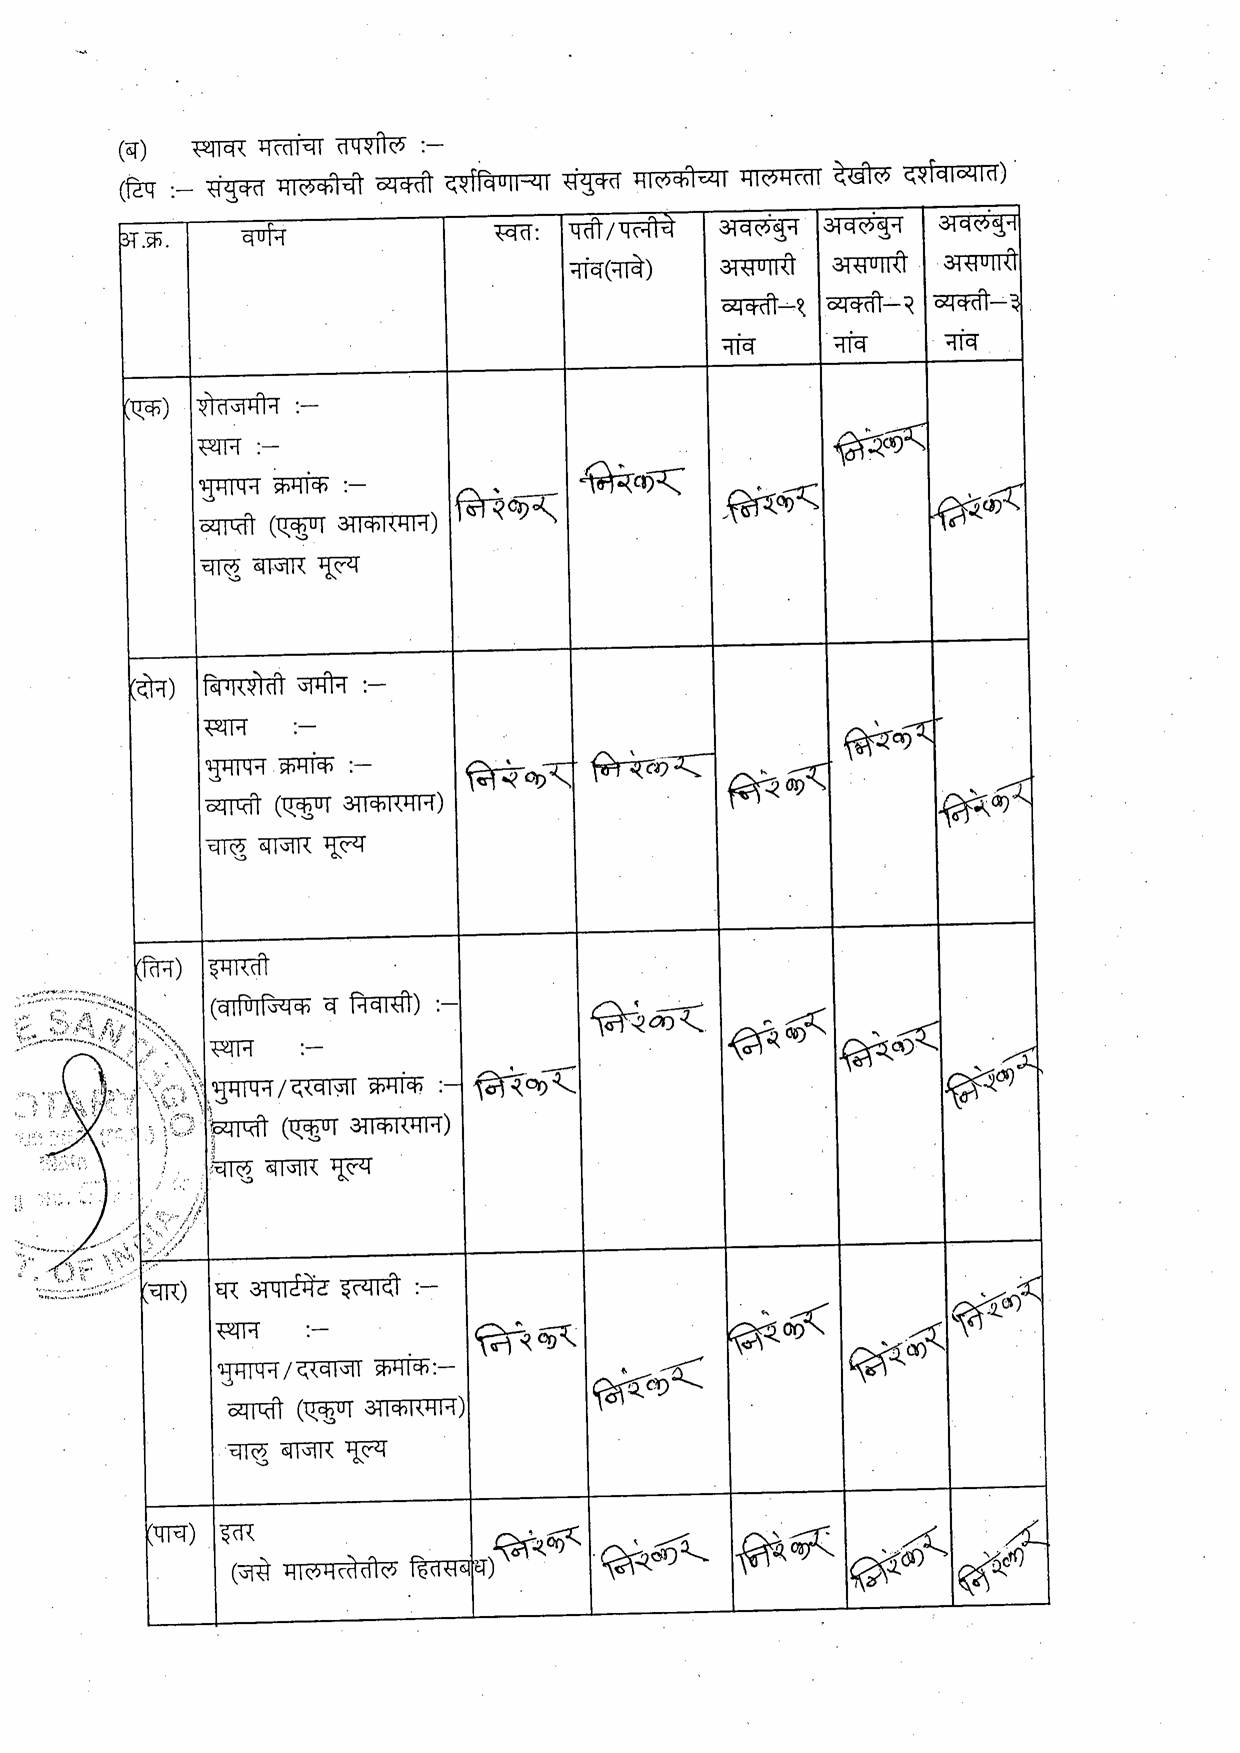 (ब) स्थावर मत्तांचा तपशील :—
(टिप :— संयुक्त मालकीची व्यक्ती दर्शविणाऱ्या संयुक्त मालकीच्या मालमत्ता देखील दर्शवाव्यात)
अ.क्र. वर्णन स्वतः पती/पत्नीचे अवलंबुन अवलंबुन अवलंबुन
नांव(नावे) असणारी असणारी असणारी
व्यक्ती—१ व्यक्ती—२ व्यक्ती—३
नांव नांव नांव
(एक) शेतजमीन :—
स्थान :—
भुमापन क्रमांक :—
व्याप्ती (एकुण आकारमान)
चालु बाजार मूल्य
निरंकर निरंकर निरंकर निरंकर निरंकर
(दोन) बिगरशेती जमीन :—
स्थान :—
भुमापन क्रमांक :—
व्याप्ती (एकुण आकारमान)
चालु बाजार मूल्य
निरंकर निरंकर निरंकर निरंकर निरंकर
(तिन) इमारती
(वाणिज्यिक व निवासी) :—
स्थान :—
भुमापन/दरवाजा क्रमांक :—
व्याप्ती (एकुण आकारमान)
चालु बाजार मूल्य
निरंकर निरंकर निरंकर निरंकर निरंकर
(चार) घर अपार्टमेंट इत्यादी :—
स्थान :—
भुमापन/दरवाजा क्रमांक:—
व्याप्ती (एकुण आकारमान)
चालु बाजार मूल्य
निरंकर निरंकर निरंकर निरंकर निरंकर
(पाच) इतर
(जसे मालमत्तेतील हितसबंध)
निरंकर निरंकर निरंकर निरंकर निरंकर
E SANT
OTARY
OF INDIA